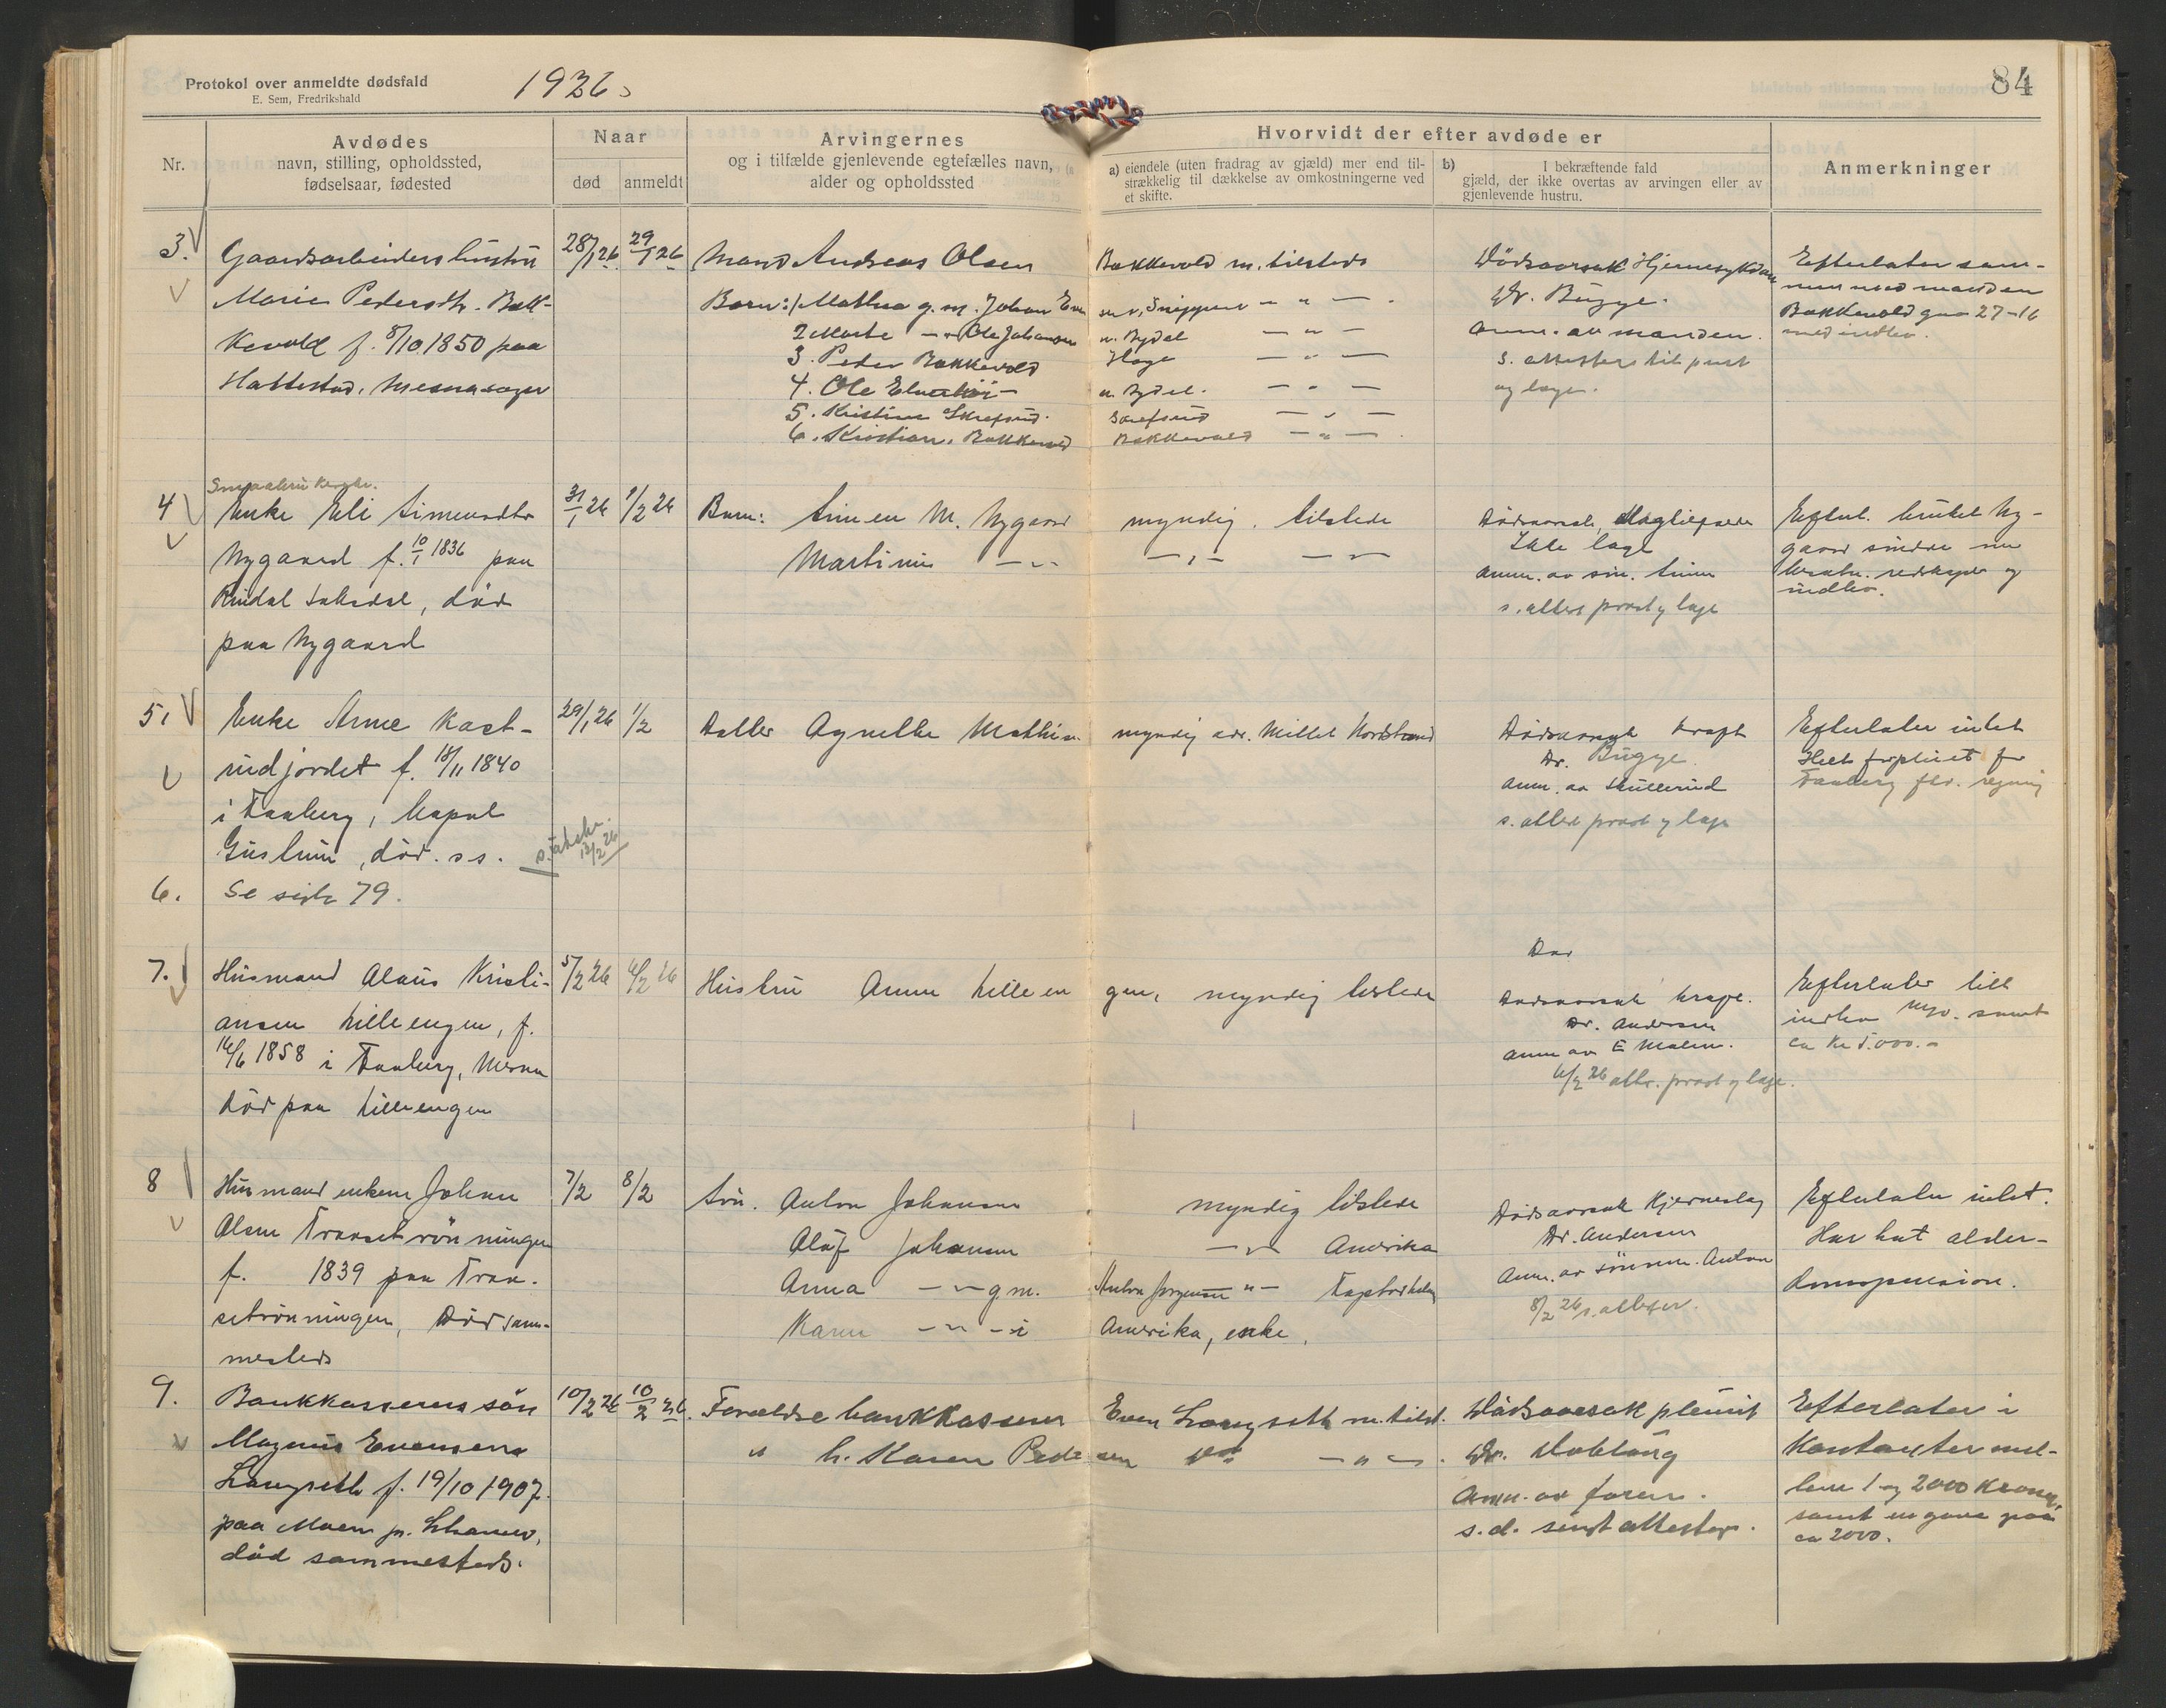 Protokol over anmeldte dødsfald
E. Sem, Fredrikshald
1926
84
Nr.
Avdødes
navn, stilling, opholdssted,
fødselsaar, fødested
Naar
død
anmeldt
Arvingernes
og i tilfælde gjenlevende egtefælles navn,
alder og opholdssted
Hvorvidt der efter avdøde er
a) eiendele (uten fradrag av gjæld) mer end til-
strækkelig til dækkelse av omkostningerne ved
et skifte.
b)
I bekræftende fald
gjæld, der ikke overtas av arvingen eller av
gjenlevende hustru.
Anmerkninger
3.
Gaardsarbeiders hustru
Marie Pedersdtr. Bak-
kevold f. 8/10 1850 paa
Hattestad, Mesna
28/1 26
29/1 26
Mand Andreas Olsen
Born: 1 Mathea g.m. Johan
2 Marte - Ole Johansen
3. Peder Bakkevold
4. Ole
5. Kristine Skrefsrud.
6. Kristian. Bakkevold
Bakkevold m. tilsteds
Bakkevold
Dödsaarsak Hjernesykdom
Dr. Bugge.
anm. av manden.
s. attester til prest
og lage.
Efterlater sam-
men med manden
Bakkevold gno 27-16
med indbo.
4
Enke Eli Simensdtr
Nygaard f. 10/1 1836 paa
død
paa Nygaard
31/1 26
1/2 26
Barn: Simen M. Nygaard
Martinus
myndig. tilstede
Dödsaarsak,
Ikke lage
anm. av søn. Simen
s. attest prast og lage
Efterl. bruket Ny-
gaard
redskaper og
indbo.
5.
Enke Anne Kast-
rudjordet f. 18/11 1840
i Faaberg,
død. ss.
s.
12/2 26
29/1 26
1/2
Datter Agnethe Mathis
myndig adr. Millet Nordstrand
Dödsaarsak kræft
Dr. Bugge.
anm. av Skullerud
s. attest prast og lage
Efterlater intet
Helt forpleiet for
Faaberg ftv. regning
6.
Se side 79.
7.
Husmand Olaus Kristi-
ansen Lilleengen, f.
16/6 1858 i Faaberg, Mesna
död paa Lilleengen
5/2 26
6/2 26
Hustru Anne Lilleen
gen, myndig tilstede
Död
Dödsaarsak kræft.
Dr. Andersen
anm av E Malm.
6/2 26 att. prast og lage.
Efterlater litt
indbo samt
ca Kr 5.000.-
8
Husmand enkem Johan
Olsen Transetrönningen
f. 1839 paa Tran-
setrönningen, Död sam-
mesteds
7/2
8/2
Sön. Anton Johansen
Olaf Johansen
Anna g.m.
Karen - i
myndig tilstede
Amerika
Anton Jørgensen
Amerika, enke.
Dödsaarsak Hjerneslag
Dr. Andersen
Anm. av sönnen Anton
8/2 26 s. attester.
Efterlater intet.
Har hat alder-
domspension.
9.
Bankkasserers sön
Magnus Evensen
Langseth f. 19/10 1907.
paa Moen pr. Lhamer,
död sammesteds.
10/2 26
10/2 26.
Forældre bankkasserer
" h. Karen Peder
Even Langseth m. tilst.
sen
Dödsaarsak pleurit
Dr.
Anm. av faren.
s.d. sendt attester.
Efterlater i
Kontanter mel-
lem 1 og 2000 Kroner,
samt en gave paa
ca 2000.